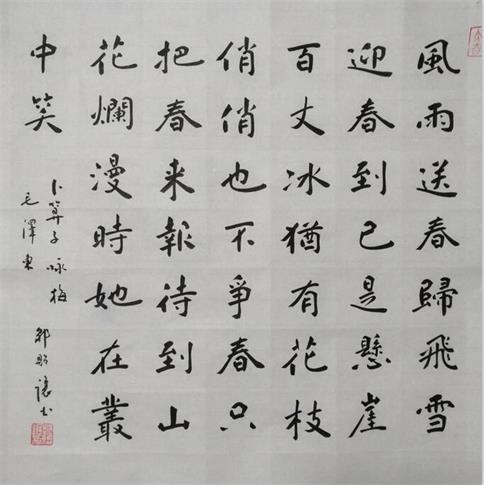 風雨送春歸飛雪
迎春到已是懸崖
百丈冰猶有花枝
俏俏也不爭春只
把春來報待到山
花爛漫時她在叢
中笑
卜算子咏梅
毛澤東
书